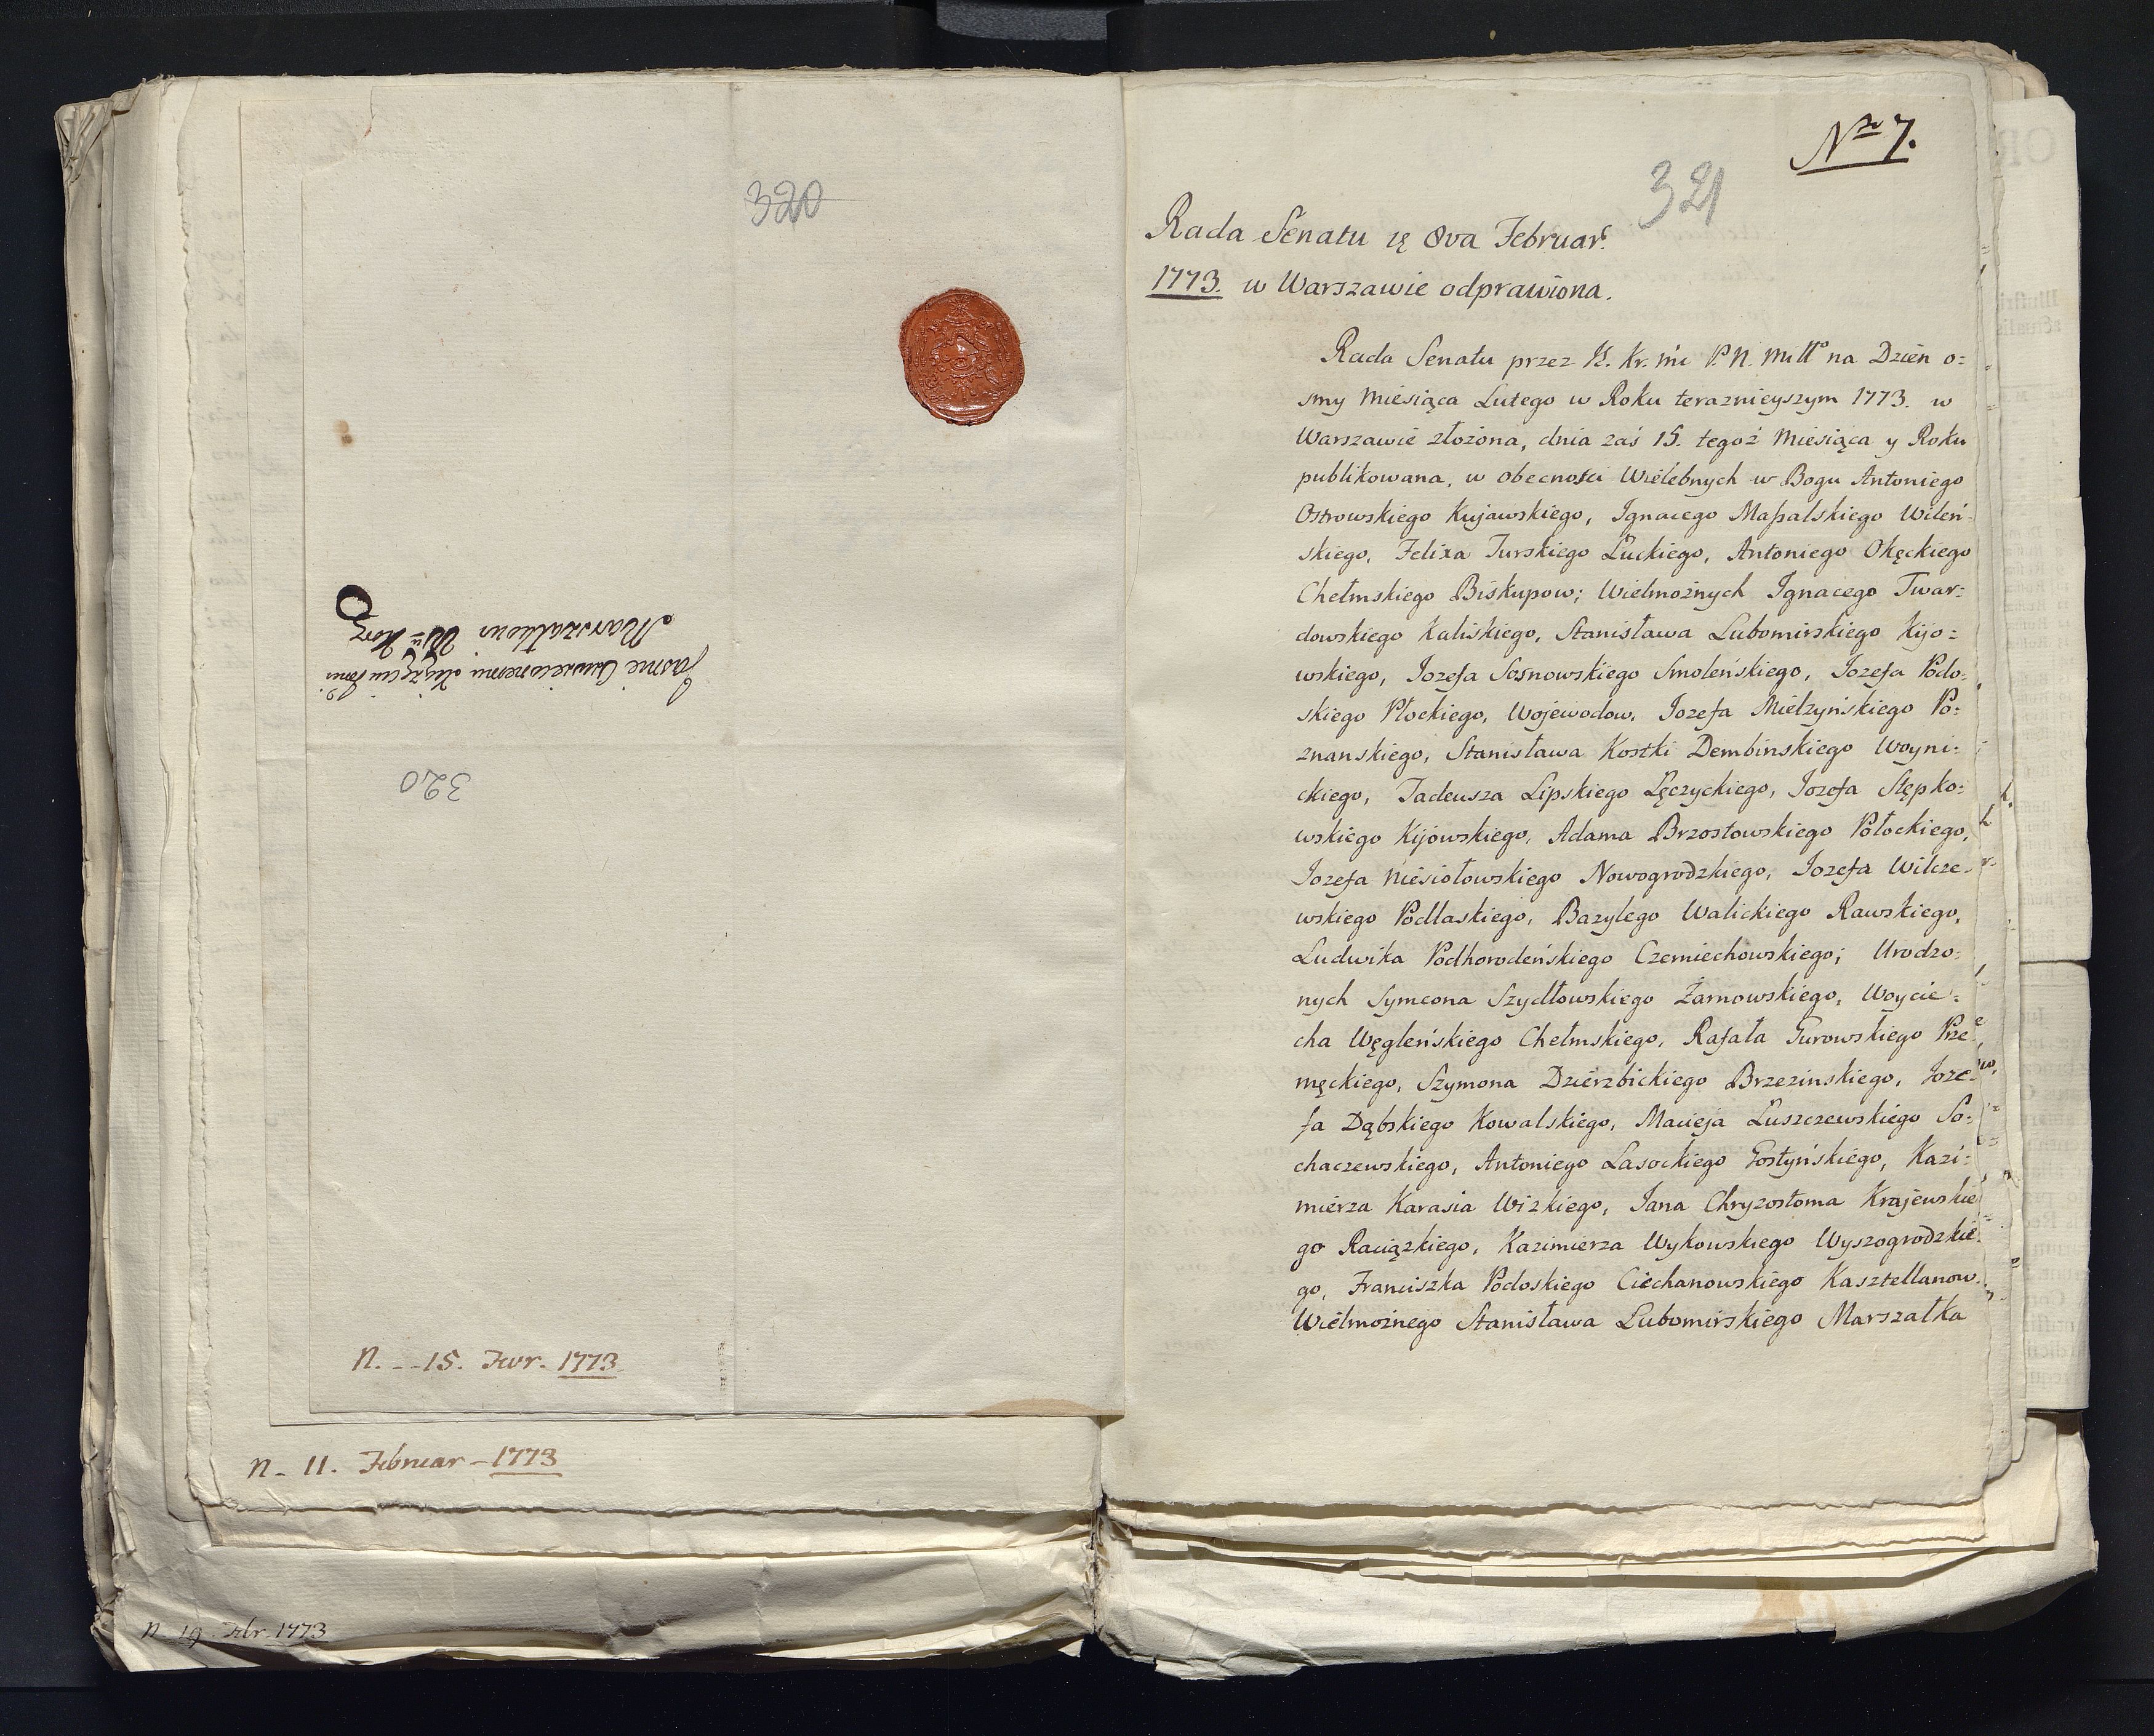 320
Jasnie Oswieconemu Xiążęciu Jmci
Marszałkowi W. Kor.
320
N. - - 15. Fwr. 1773
N - 11. Februar - 1773
N 19 Febr. 1773
Nro 7.
321
Rada Senatu ię 8va Februar.
1773. w Warszawie odprawiona.
Rada Senatu przez K. Kr. Mć P. N. Miłło na Dzień o=
smy Miesiąca Lutego w Roku teraznieyszym 1773. w
Warszawie złożona, dnia zaś 15. tegoż Miesiąca y Roku
publikowana, w obecności Wielebnych w Bogu Antoniego
Ostrowskiego Kujawskiego, Ignacego Maſsalskiego Wileń-
skiego, Felixa Turskiego Łuckiego, Antoniego Okęckiego
Chełmskiego Biskupow; Wielmożnych Ignacego Twar=
dowskiego Kaliskiego, Stanisława Lubomirskiego Kijo=
wskiego, Jozefa Sosnowskiego Smoleńskiego, Jozefa Podo=
skiego Płockiego, Wojewodow, Jozefa Mielzyńskiego Po=
znanskiego, Stanisława Kostki Dembinskiego Woyni=
ckiego, Tadeusza Lipskiego Łęczyckiego, Jozefa Stępko=
wskiego Kijowskiego, Adama Brzostowskiego Połockiego,
Jozefa Niesiołowskiego Nowogrodzkiego, Jozefa Wilcze-
wskiego Podlaskiego, Bazylego Walickiego Rawskiego,
Ludwika Podhorodeńskiego Czerniechowskiego; Urodzo=
nych Symeona Szydłowskiego Żarnowskiego, Woycie=
cha Węgleńskiego Chełmskiego, Rafała Gurowskiego Prze
męckiego, Szymona Dzierzbickiego Brzezinskiego, Joze=
fa Dąbskiego Kowalskiego, Macieja Łuszczewskiego So=
chaczewskiego, Antoniego Lasockiego Gostyńskiego, Kazi=
mierza Karasia Wizkiego, Jana Chryzostoma Krajewskie
go Raciązkiego, Kazimierza Wykowskiego Wyszogrodzkie=
go, Franciszka Podoskiego Ciechanowskiego Kasztellanow.
Wielmożnego Stanisława Lubomirskiego Marszałka